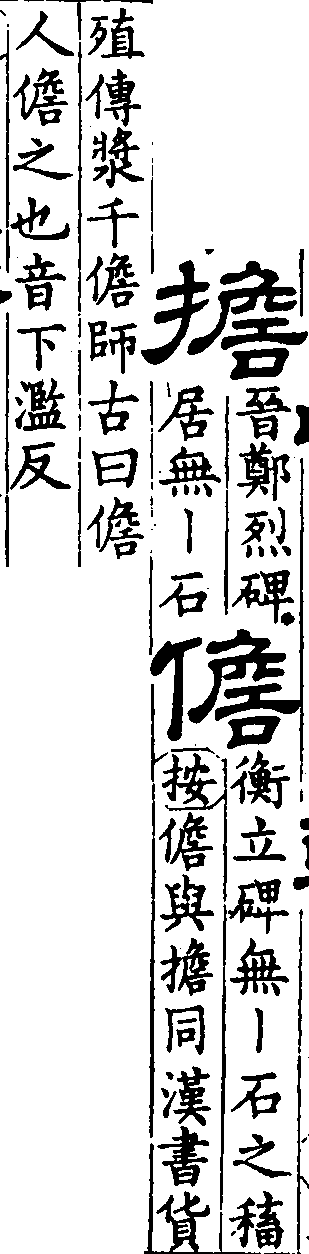 擔
晉鄭烈碑
居無丨石
儋
衡立碑無丨石之稸
按儋與擔同漢書貨
殖傳漿千儋師古曰儋
人儋之也音下濫反